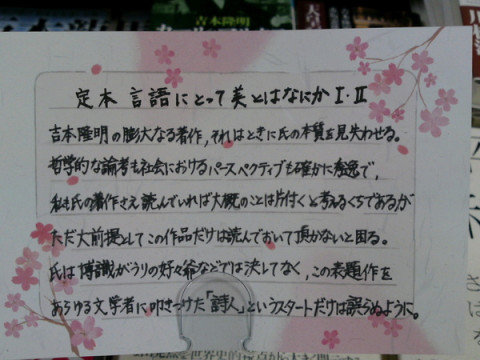 吉本隆明
定本 言語にとって美とはなにかⅠ・Ⅱ
吉本隆明の膨大なる著作、それはときに氏の本質を見失わせる。
哲学的な論考も社会におけるパースペクティブも確かに秀逸で、
私も氏の著作さえ読んでいれば大概のことは片付くと考えるくちであるが
ただ大前提としてこの作品だけは読んでおいて頂かないと困る。
氏は博識がうりの好々爺などでは決してなく、この表題作を
あらゆる文学者に叩きつけた「詩人」というスタートだけは誤らぬように。